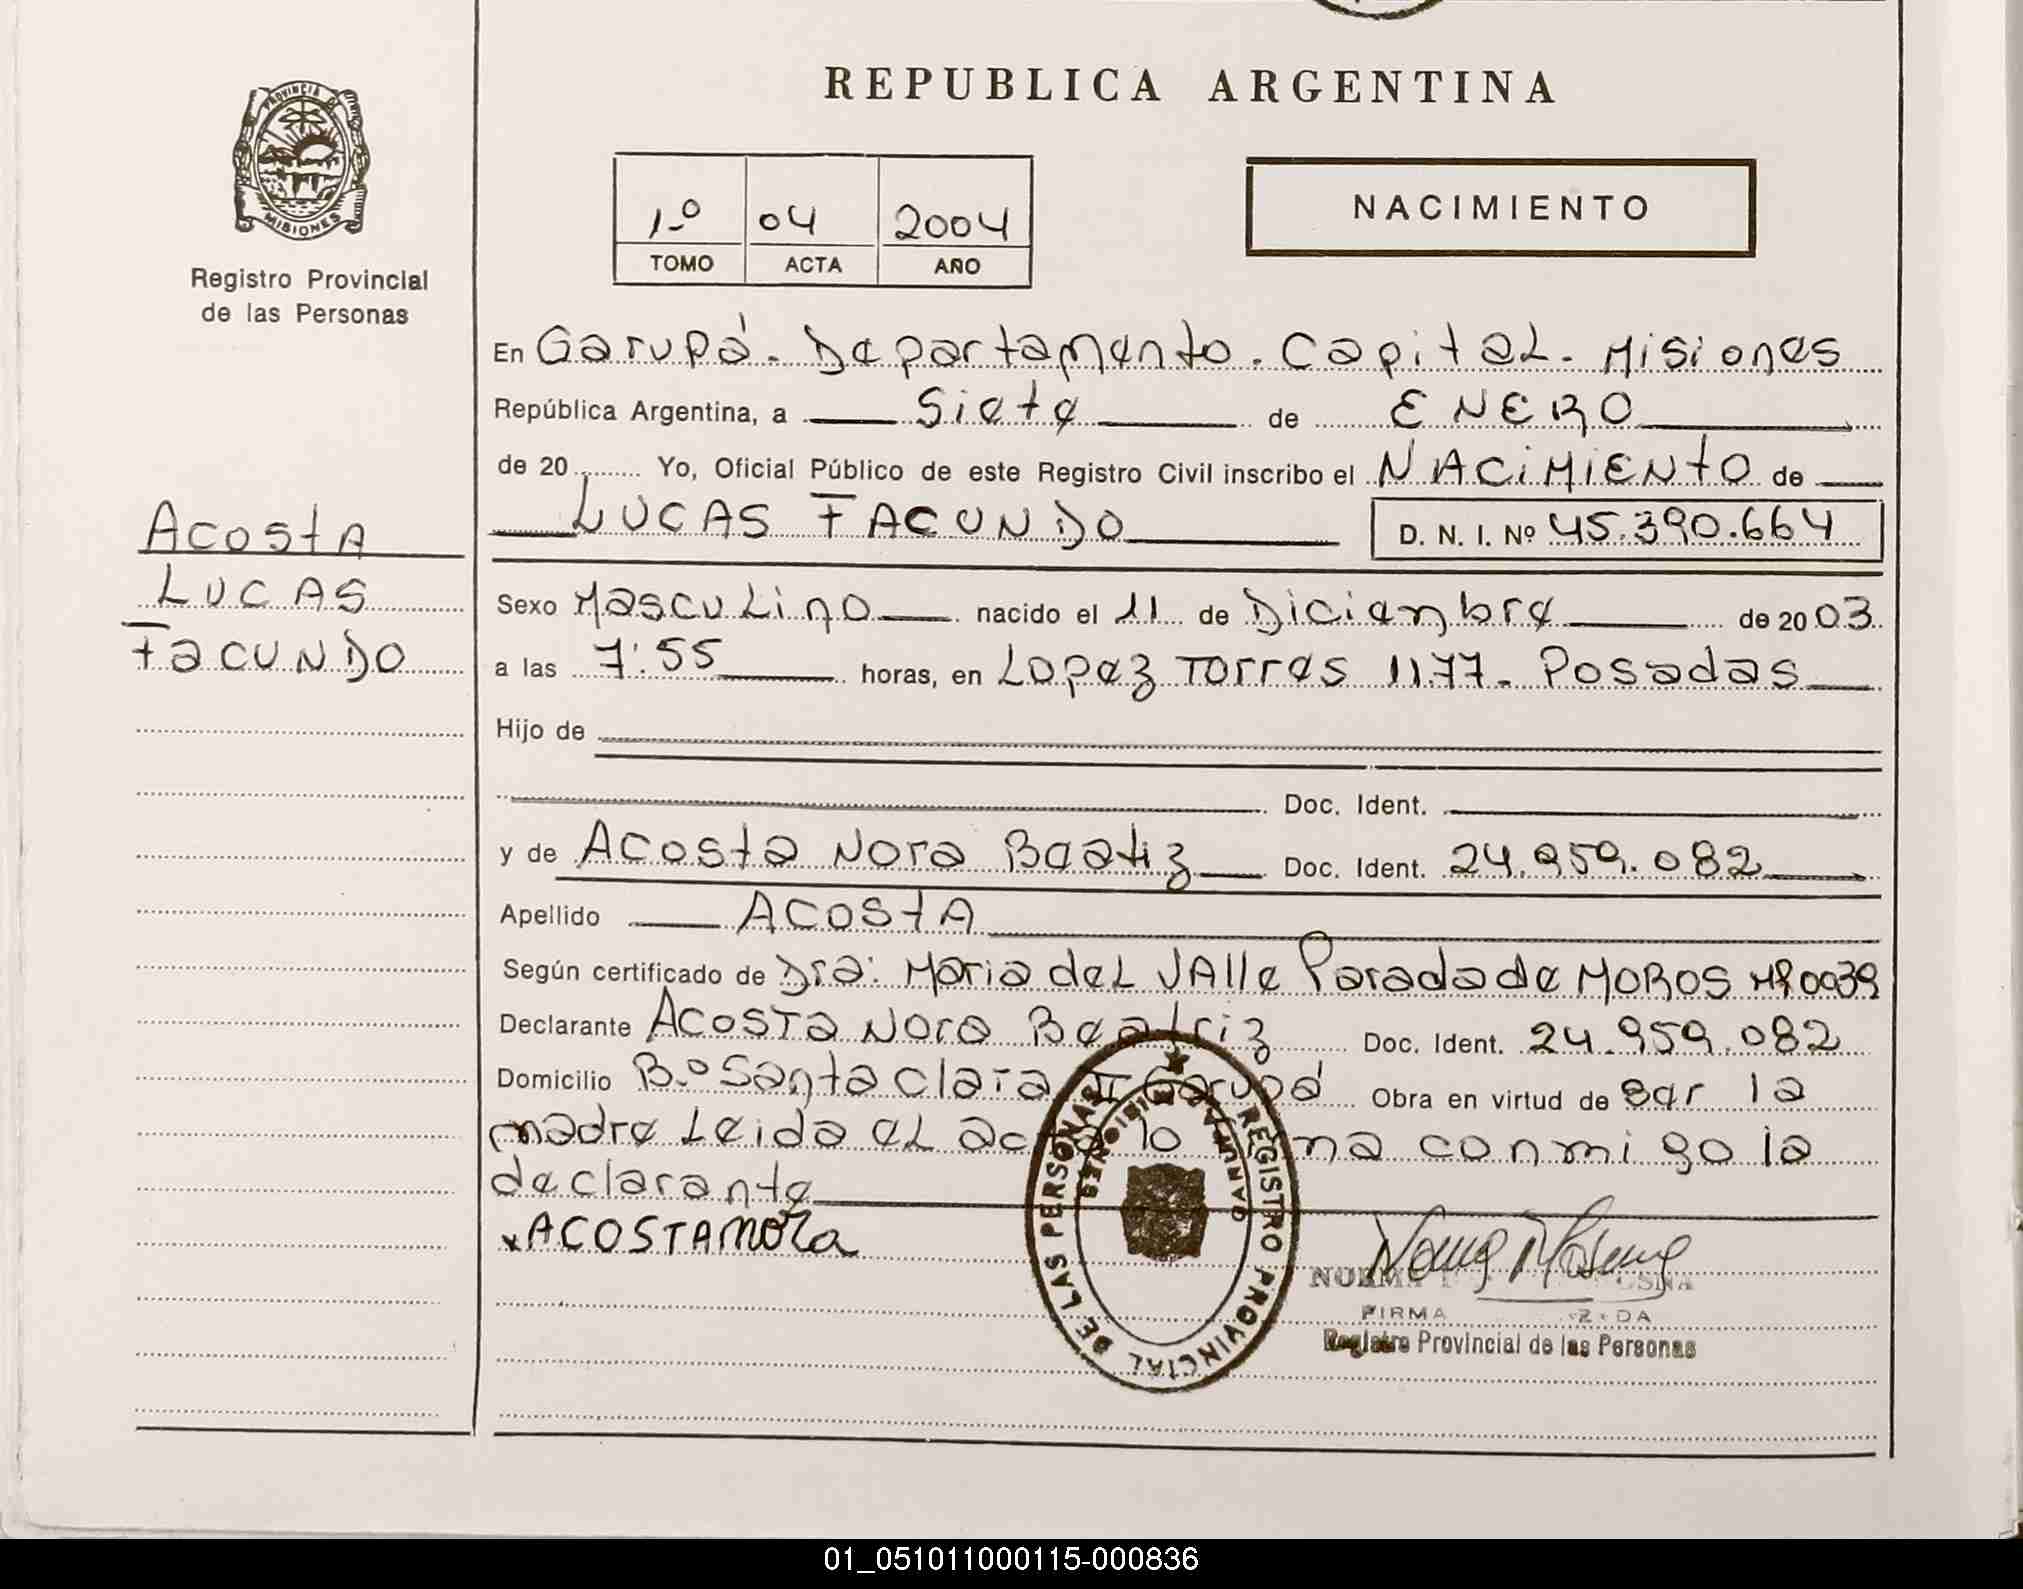 REPUBLICA ARGENTINA
PROVINCIA DE MISIONES
Registro Provincial
de las Personas
1º 04 2004
TOMO ACTA AÑO
NACIMIENTO
Acosta
Lucas
Facundo
En Garupá. Departamento. Capital. Misiones
República Argentina, a Siete de ENERO
de 20 Yo, Oficial Público de este Registro Civil inscribo el NACIMIENTO de
LUCAS FACUNDO D. N. I. Nº 45.390.664
Sexo Masculino nacido el 11 de Diciembre de 2003
a las 7:55 horas, en Lopez Torres 1177. Posadas
Hijo de
Doc. Ident.
y de Acosta Nora Beatiz Doc. Ident. 24.959.082
Apellido ACOSTA
Según certificado de Dra: Maria del Valle Parada de MOROS MP0039
Declarante Acosta Nora Beatriz Doc. Ident. 24.959.082
Domicilio Bº Santa clara II Garupá Obra en virtud de ser la
madre Leida el acta lo firma conmigo la
declarante
x ACOSTA Nora
REGISTRO PROVINCIAL DE LAS PERSONAS
MISIONES
NORMA
FIRMA
Registro Provincial de las Personas
01_051011000115-000836